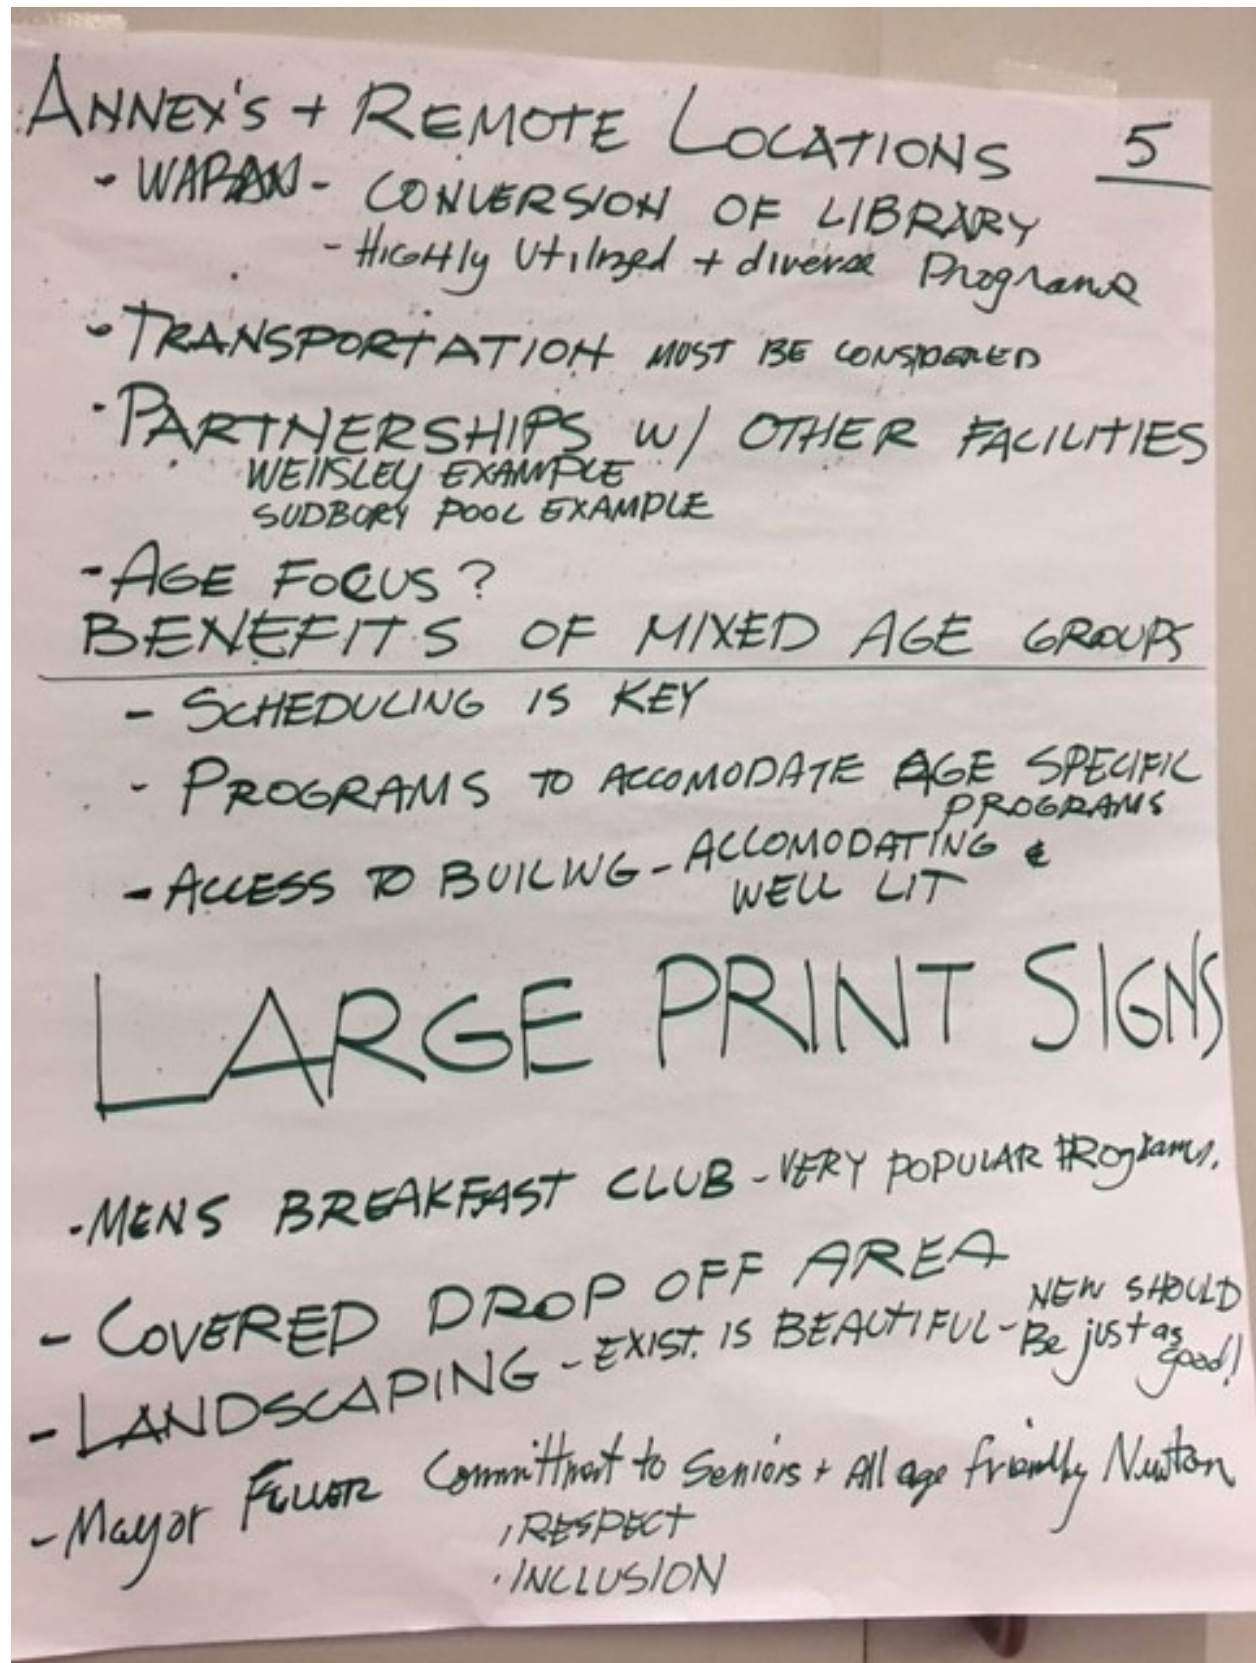 ANNEX'S + REMOTE LOCATIONS 5
- WABAN - CONVERSION OF LIBRARY
- HIGHly Utilized + diverse Programs
- TRANSPORTATION MUST BE CONSIDERED
- PARTNERSHIPS W/ OTHER FACILITIES
WEllSLEY EXAMPLE
SUDBORY POOL EXAMPLE
- AGE FOCUS?
BENEFITS OF MIXED AGE GROUPS
- SCHEDULING IS KEY
- PROGRAMS TO ACCOMODATE AGE SPECIFIC
PROGRAMS
- ACCESS TO BUILING - ACCOMODATING &
WELL LIT
LARGE PRINT SIGNS
- MENS BREAKFAST CLUB - VERY POPULAR PROgrams.
- COVERED DROP OFF AREA
- LANDSCAPING - EXIST. IS BEAUTIFUL - NEW SHOULD
Be just as
good!
- Mayor FULLER Committment to Seniors + All age friendly Newton
. RESPECT
. INCLUSION